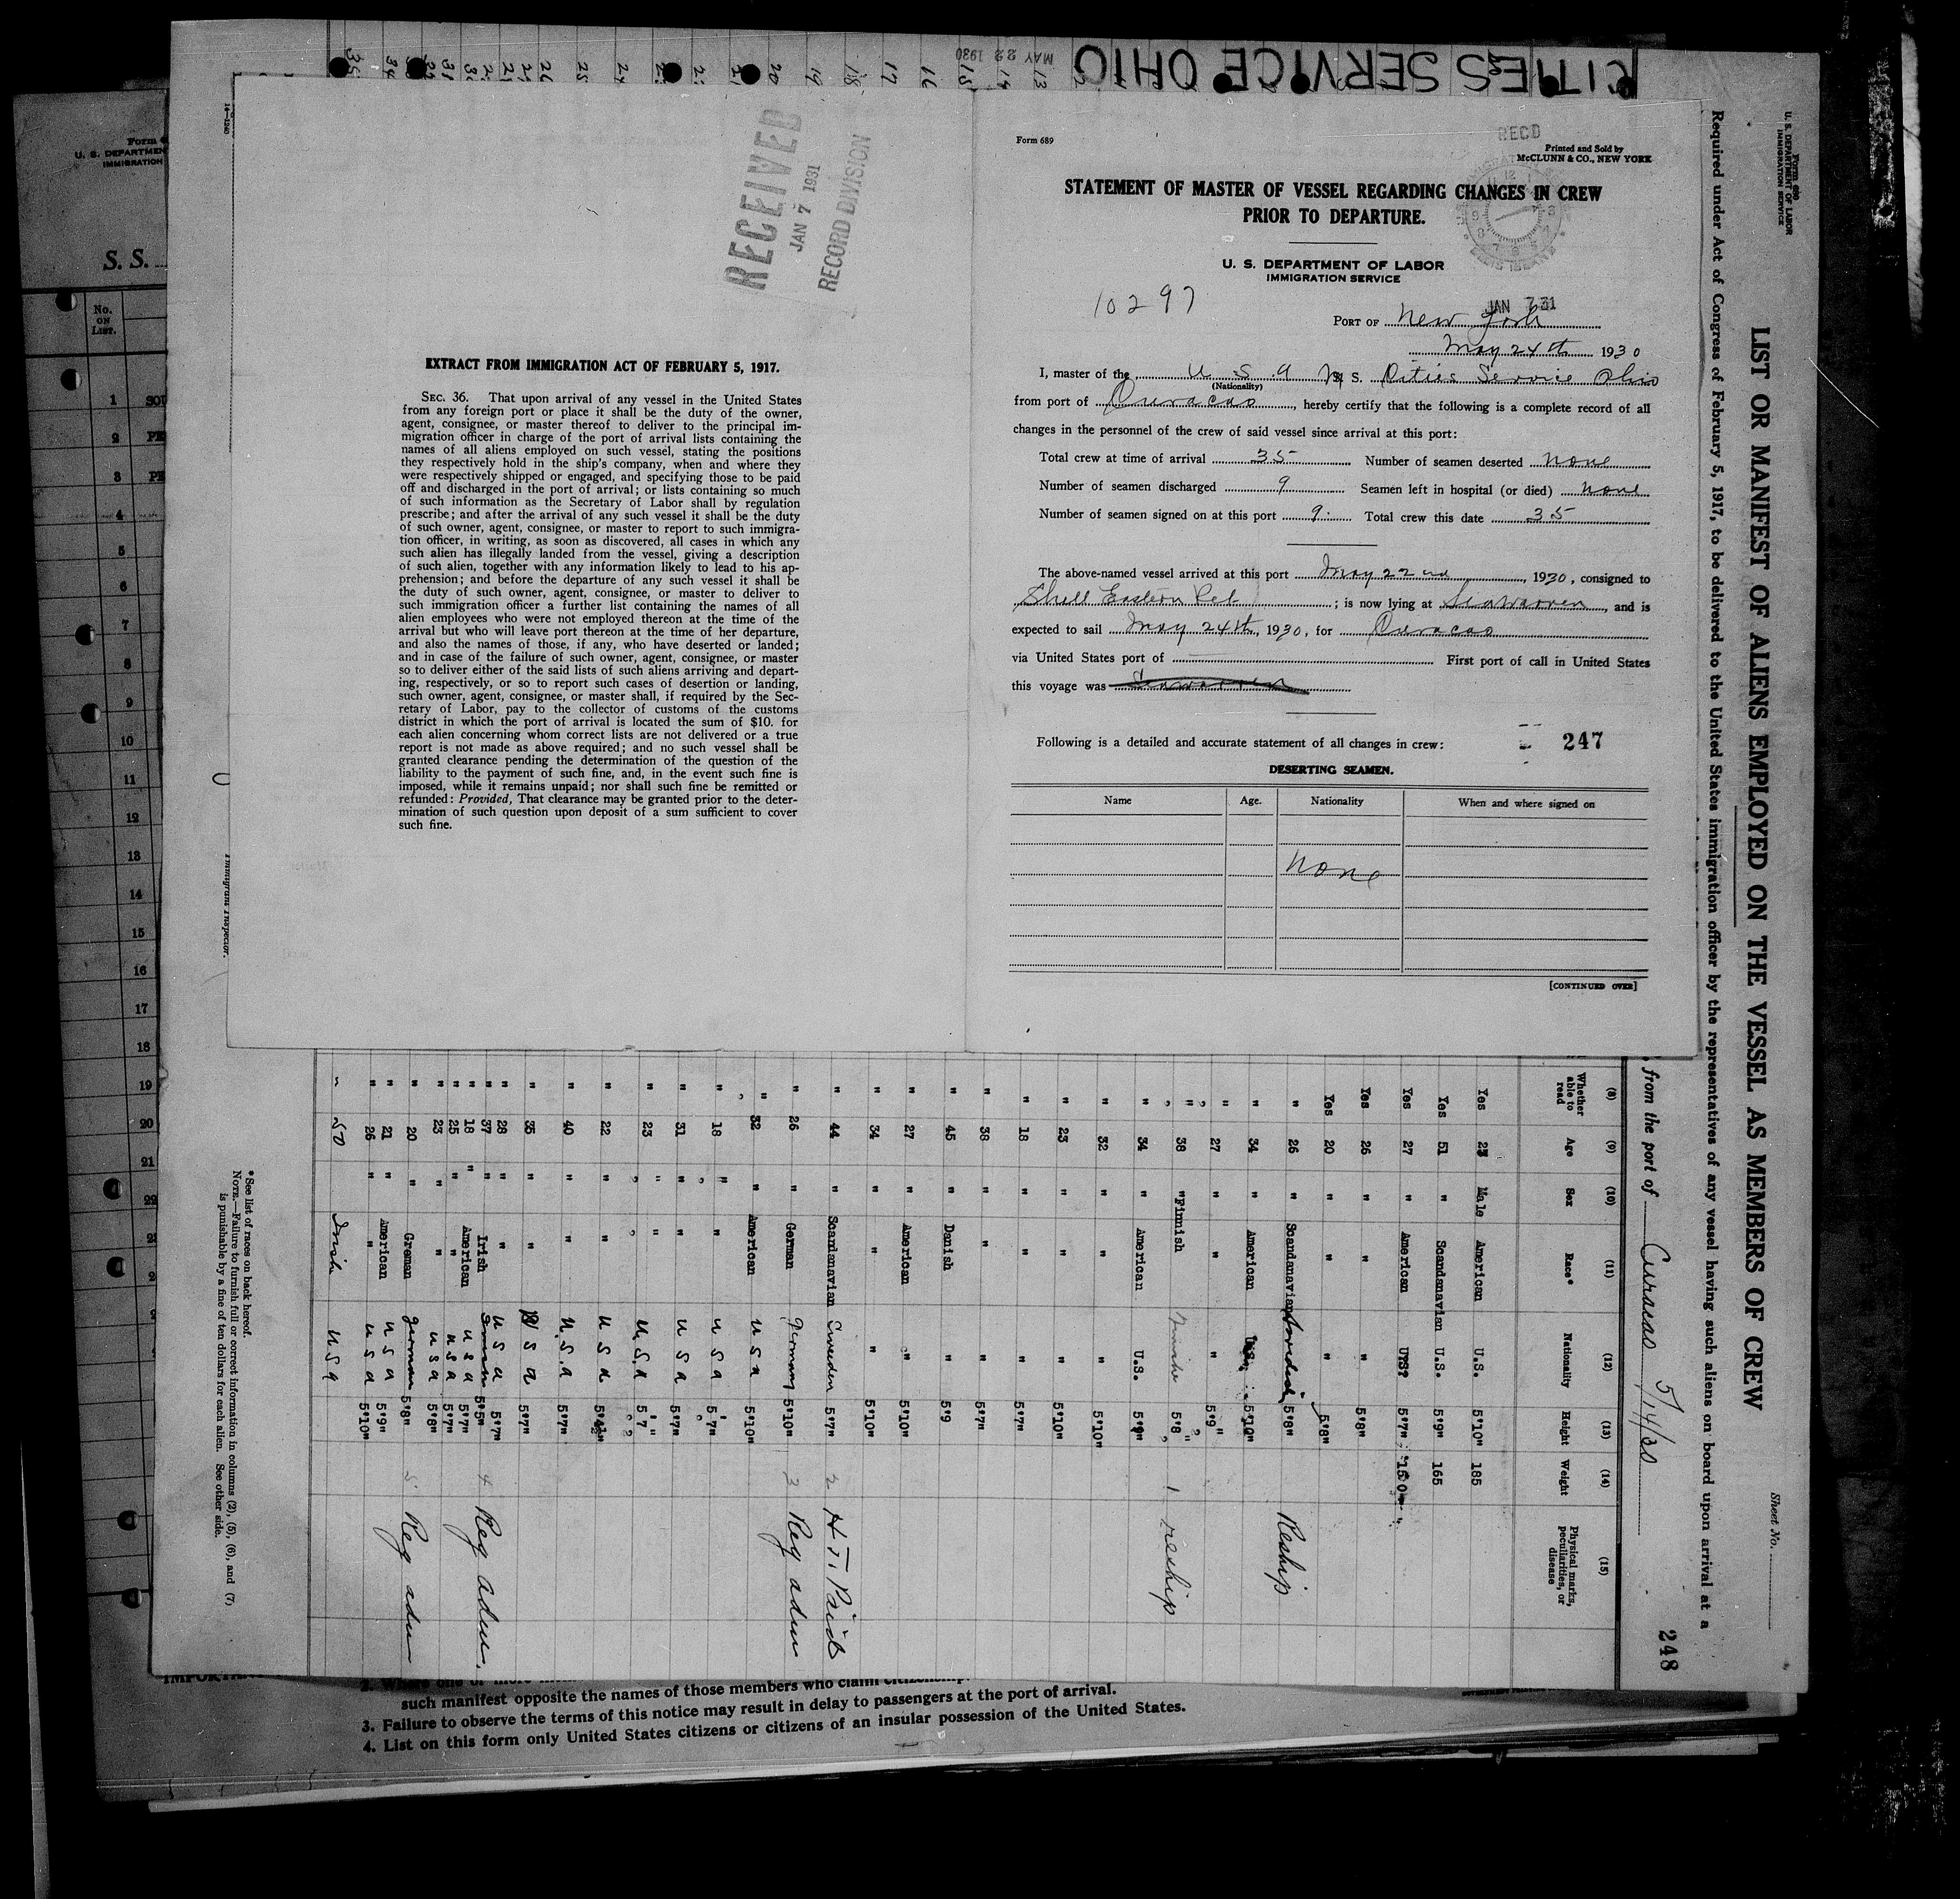 CITIES SERVICE OHIO
MAY 22 1930
Form 689
RECD
Printed and Sold by
McCLUNN & CO., NEW YORK
STATEMENT OF MASTER OF VESSEL REGARDING CHANGES IN CREW
PRIOR TO DEPARTURE.
U. S. DEPARTMENT OF LABOR
IMMIGRATION SERVICE
10297
JAN 7 31
PORT OF New York
May 24th 1930
I, master of the U S A M S. Cities Service Ohio
(Nationality)
from port of Curacao, hereby certify that the following is a complete record of all
changes in the personnel of the crew of said vessel since arrival at this port:
Total crew at time of arrival 35 Number of seamen deserted none
Number of seamen discharged 9 Seamen left in hospital (or died) none
Number of seamen signed on at this port 9. Total crew this date 35
The above-named vessel arrived at this port May 22nd, 1930, consigned to
Shell Eastern Pet; is now lying at Seawarren, and is
expected to sail May 24th, 1930, for Curacao
via United States port of First port of call in United States
this voyage was Seawarren
Following is a detailed and accurate statement of all changes in crew: 247
DESERTING SEAMEN.
Name Age. Nationality When and where signed on
None
[CONTINUED OVER]
RECEIVED
JAN 7 1931
RECORD DIVISION
EXTRACT FROM IMMIGRATION ACT OF FEBRUARY 5, 1917.
SEC. 36. That upon arrival of any vessel in the United States
from any foreign port or place it shall be the duty of the owner,
agent, consignee, or master thereof to deliver to the principal im-
migration officer in charge of the port of arrival lists containing the
names of all aliens employed on such vessel, stating the positions
they respectively hold in the ship's company, when and where they
were respectively shipped or engaged, and specifying those to be paid
off and discharged in the port of arrival; or lists containing so much
of such information as the Secretary of Labor shall by regulation
prescribe; and after the arrival of any such vessel it shall be the duty
of such owner, agent, consignee, or master to report to such immigra-
tion officer, in writing, as soon as discovered, all cases in which any
such alien has illegally landed from the vessel, giving a description
of such alien, together with any information likely to lead to his ap-
prehension; and before the departure of any such vessel it shall be
the duty of such owner, agent, consignee, or master to deliver to
such immigration officer a further list containing the names of all
alien employees who were not employed thereon at the time of the
arrival but who will leave port thereon at the time of her departure,
and also the names of those, if any, who have deserted or landed;
and in case of the failure of such owner, agent, consignee, or master
so to deliver either of the said lists of such aliens arriving and depart-
ing, respectively, or so to report such cases of desertion or landing,
such owner, agent, consignee, or master shall, if required by the Sec-
retary of Labor, pay to the collector of customs of the customs
district in which the port of arrival is located the sum of $10. for
each alien concerning whom correct lists are not delivered or a true
report is not made as above required; and no such vessel shall be
granted clearance pending the determination of the question of the
liability to the payment of such fine, and, in the event such fine is
imposed, while it remains unpaid; nor shall such fine be remitted or
refunded: Provided, That clearance may be granted prior to the deter-
mination of such question upon deposit of a sum sufficient to cover
such fine.
U. S. DEPARTMENT OF LABOR
IMMIGRATION SERVICE
Sheet No.
LIST OR MANIFEST OF ALIENS EMPLOYED ON THE VESSEL AS MEMBERS OF CREW
Required under Act of Congress of February 5, 1917, to be delivered to the United States immigration officer by the representatives of any vessel having such aliens on board upon arrival at a
from the port of Curacao 5/14/30
248
(8) (9) (10) (11) (12) (13) (14) (15)
Whether able to read Age Sex Race* Nationality Height Weight Physical marks, peculiarities, or disease
Yes 23 Male American U.S. 5'10" 185
Yes 51 " Scandanavian U.S. 5'9" 165
Yes 27 " American U.S. 5'7" 150
Yes 26 " " " 5'8"
Yes 20 " " " 5'8"
" 26 " Scandanavian Swedish 5'8" Reship
" 34 " American 5'10"
" 27 " " " 5'9"
" 38 " Finnish 5'8 1 reship
" 34 " American U.S. 5'9"
" 32 " " " 5'10"
" 23 " " " 5'10"
" 18 " " " 5'7"
" 38 " " " 5'7"
" 45 " Danish " 5'9
" 27 " American " 5'10"
" 34 " " " 5'10"
" 44 " Scandanavian Sweden 5'7" 2 H.T. Paid
" 26 " German Germany 5'10" 3 Reg adm
" 32 " American U S A 5'10"
" 18 " " U S A 5'7"
" 31 " " U S A 5'7"
" 23 " " U.S.A 5'7"
" 22 " " U S A
" 40 " " U.S.A 5'7"
" 35 " " U S A 5'7"
" 28 " " U S A 5'7"
" 37 " Irish 5'5" 4 Reg adm.
" 18 " American U S A 5'7"
" 25 " " U S A 5'7"
" 23 " " U S A 5'8"
" 20 " Greman German 5'8" 5 Reg adm
" 21 " American U S A 5'9"
" 26 " " U S A 5'10"
" 50 Irish U S A
*See list of races on back hereof.
NOTE.—Failure to furnish full or correct information in columns (2), (5), (6), and (7)
is punishable by a fine of ten dollars for each alien. See other side.
Immigrant Inspector.
14—1240
Form
U. S. DEPARTMEN
IMMIGRATION
S. S.
No. ON LIST.
1
2
3
4
5
6
7
8
9
10
11
12
13
14
15
16
17
18
19
20
21
22
such manifest opposite the names of those members who claim
3. Failure to observe the terms of this notice may result in delay to passengers at the port of arrival.
4. List on this form only United States citizens or citizens of an insular possession of the United States.